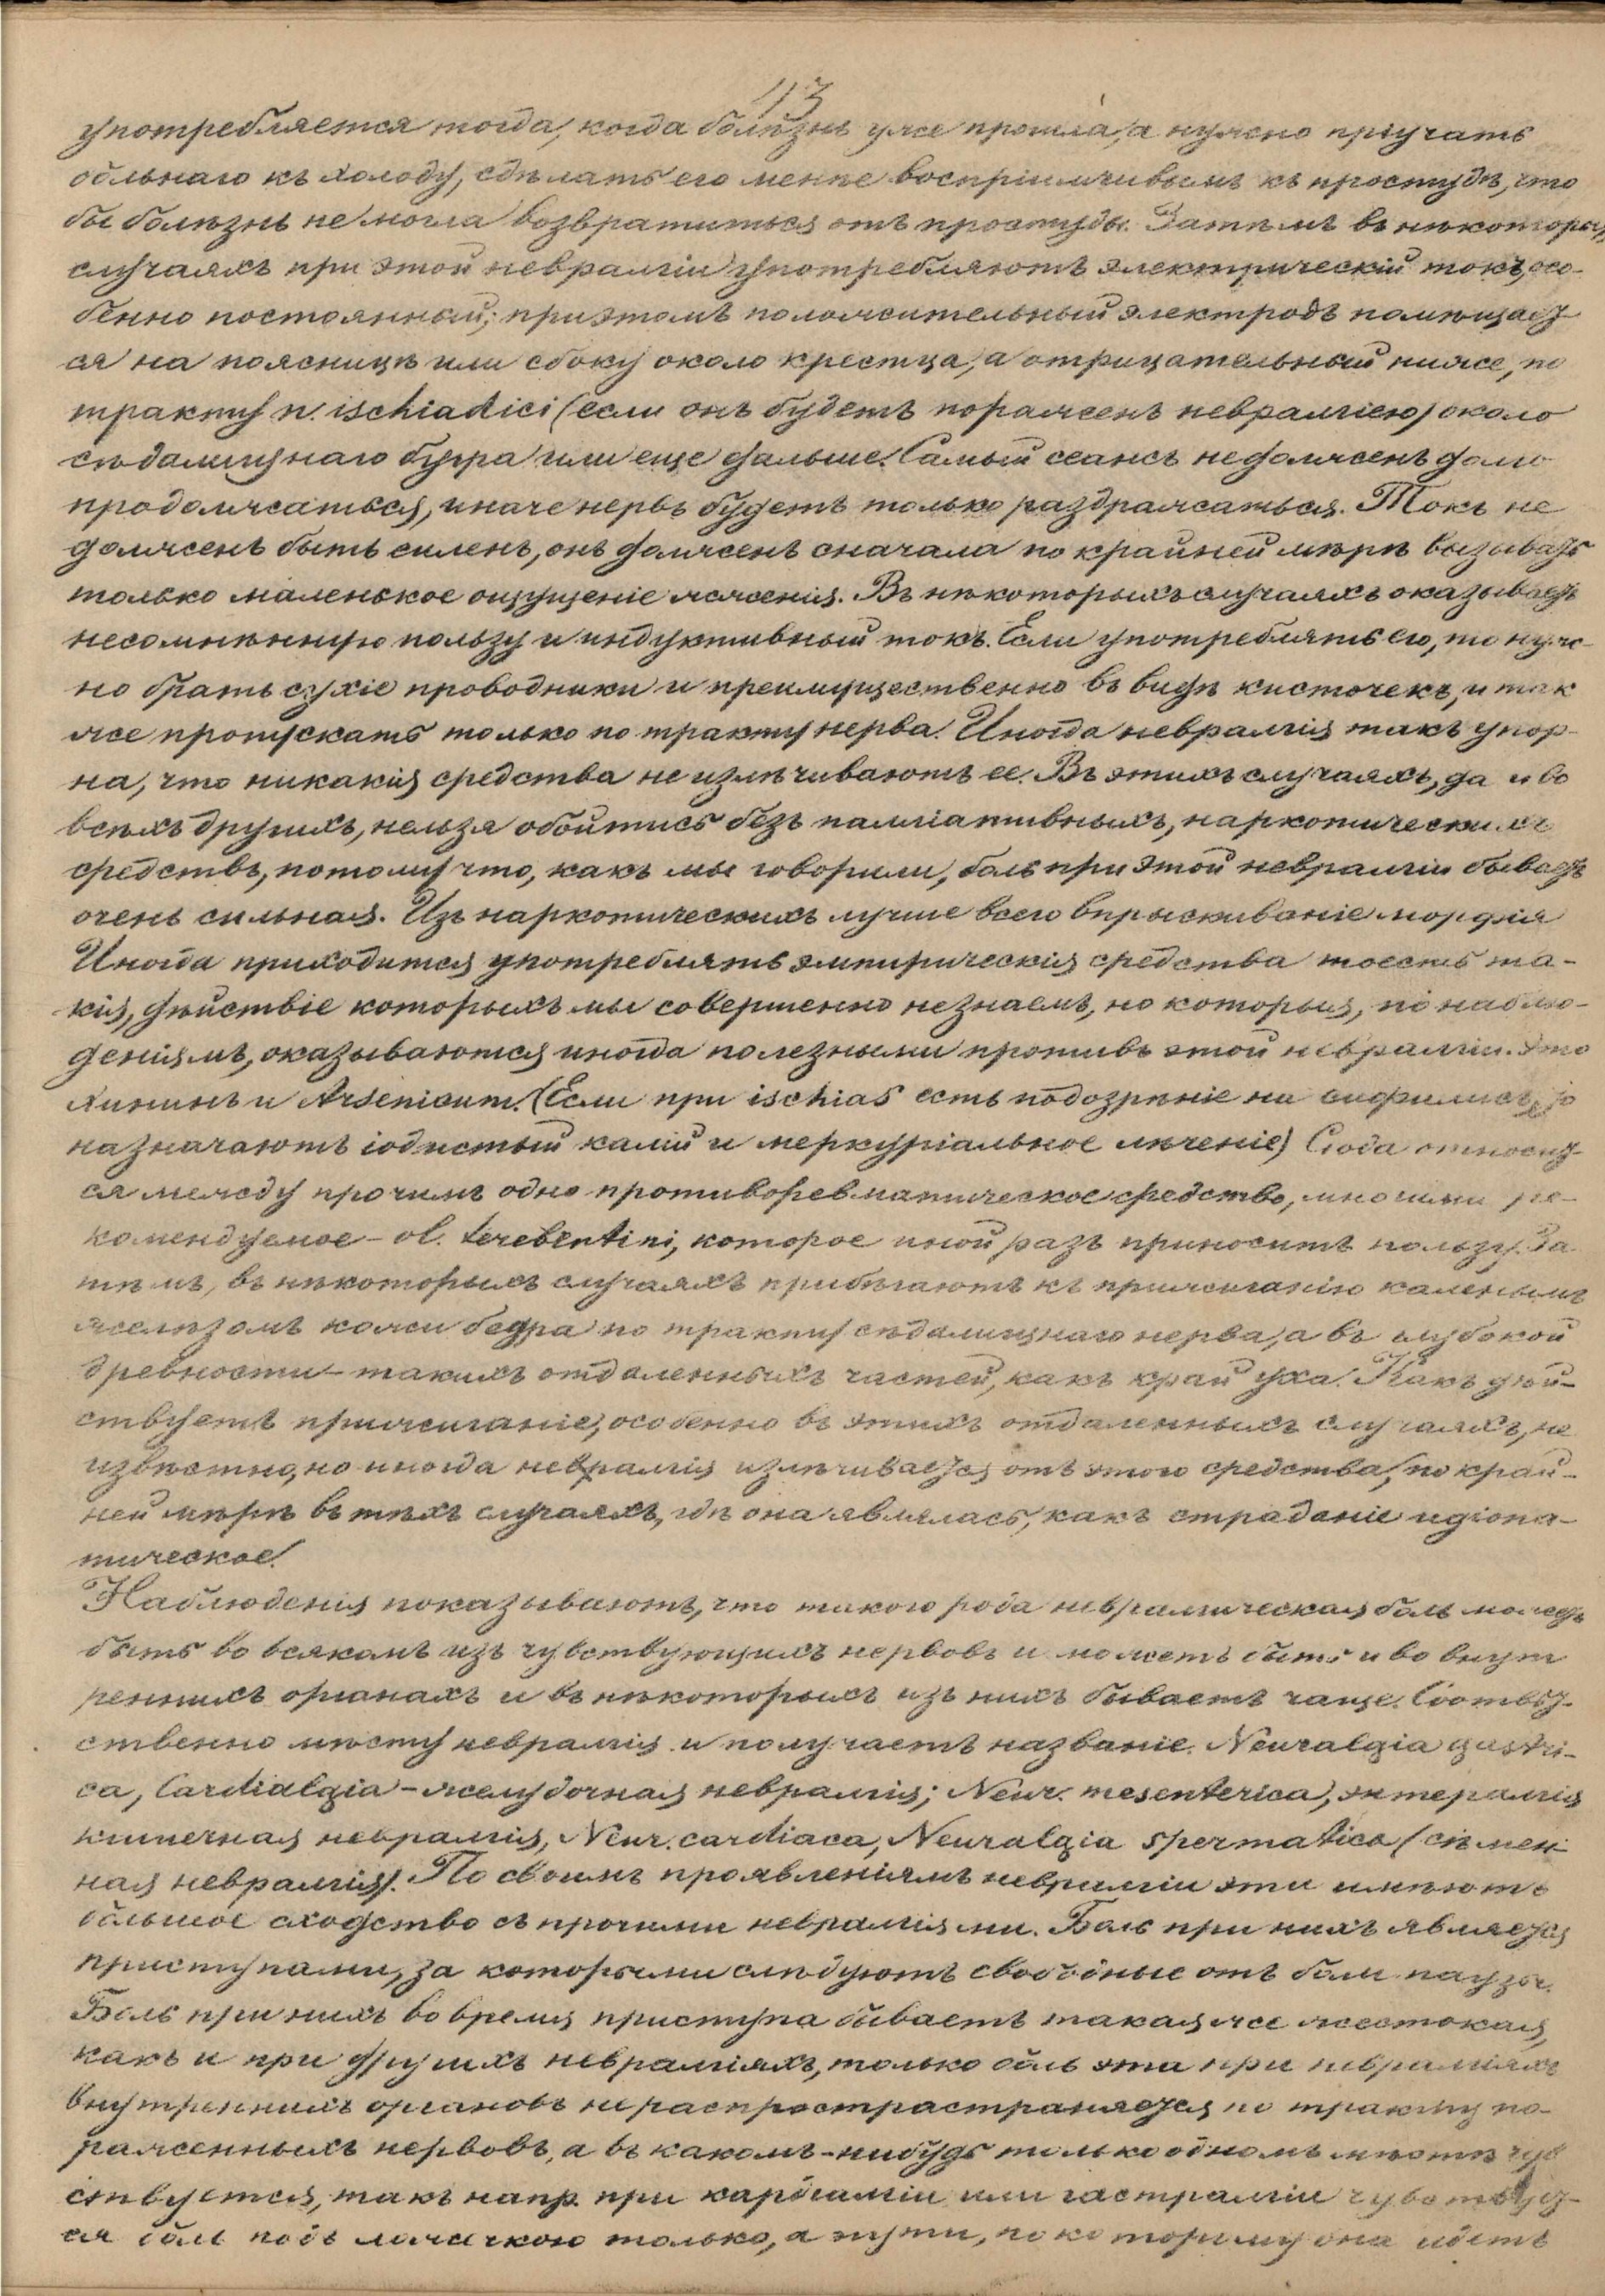 113
употребляется тогда, когда болѣзнь уже прошла, а нужно пріучать
больнаго къ холоду, сдѣлать его менѣе воспріимчивымъ къ простудѣ, что
бы болѣзнь не могла возвратиться отъ простуды. Затѣмъ въ нѣкоторыхъ
случаяхъ при этой невралгіи употребляютъ электрическій токъ, осо-
бенно постоянный; при этомъ положительный электродъ помѣщает
ся на поясницѣ или сбоку около крестца, а отрицательный ниже, по
тракту n. ischiadici (если онъ будетъ пораженъ невралгіею) около
сѣдалищнаго бугра или еще дальше. Самый сеансъ не долженъ долго
продолжаться, иначе нервъ будетъ только раздражаться. Токъ не
долженъ быть силенъ, онъ долженъ сначала по крайней мѣрѣ вызывать
только маленькое ощущеніе жженія. Въ нѣкоторыхъ случаяхъ оказываетъ
несомнѣнную пользу и индуктивный токъ. Если употреблять его, то нуж-
но брать сухіе проводники и преимущественно въ видѣ кисточекъ, и так
же пропускать только по тракту нерва. Иногда невралгія такъ упор-
на, что никакія средства не излѣчиваютъ ее. Въ этихъ случаяхъ, да и во
всѣхъ другихъ, нельзя обойтись безъ палліативныхъ, наркотическихъ
средствъ, потому что, какъ мы говорили, боль при этой невралгіи бываетъ
очень сильная. Изъ наркотическихъ лучше всего впрыскиваніе морфія
Иногда приходится употреблять эмпирическія средства тоесть та-
кія, дѣйствіе которыхъ мы совершенно не знаемъ, но которыя, по наблю-
деніямъ, оказываются иногда полезными противъ этой невралгіи. Это
хининъ и Arsenicum. (Если при ischias есть подозрѣніе на сифилисъ, то
назначаютъ іодистый калій и меркуріальное лѣченіе) Сюда относит
ся между прочимъ одно противоревматическое средство, многими ре-
комендуемое – ol. terebentini, которое иной разъ приноситъ пользу. За
тѣмъ, въ нѣкоторыхъ случаяхъ прибѣгаютъ къ прижиганію каленымъ
желѣзомъ кожи бедра по тракту сѣдалищнаго нерва, а въ глубокой
древности – такихъ отдаленныхъ частей, какъ край уха. Какъ дѣй-
ствуетъ прижиганіе, особенно въ этихъ отдаленныхъ случаяхъ, не
извѣстно, но иногда невралгія излѣчивается отъ этого средства, по край-
ней мѣрѣ въ тѣхъ случаяхъ, гдѣ она являлась, какъ страданіе идіопа-
тическое.
Наблюденія показываютъ, что такого рода невралгическая боль можетъ
быть во всякомъ изъ чувствующихъ нервовъ и можетъ быть и во внут
реннихъ органахъ и въ нѣкоторыхъ изъ нихъ бываетъ чаще. Соотвѣт-
ственно мѣсту невралгія и получаетъ названіе. Neuralgia gastri-
ca, Cardialgia – желудочная невралгія; Neur. mesenterica, энтералгія
кишечная невралгія, Neur. cardiaca, Neuralgia spermatica (сѣмен
ная невралгія). По своимъ проявленіямъ невралгіи эти имѣютъ
большое сходство съ прочими невралгіями. Боль при нихъ является
приступами, за которыми слѣдуютъ свободные отъ боли паузы.
Боль при нихъ во время приступа бываетъ такая же жестокая,
какъ и при другихъ невралгіяхъ, только боль эта при невралгіяхъ
внутреннихъ органовъ не распрострастраняется по тракту по-
раженныхъ нервовъ, а въ какомъ-нибудь только одномъ мѣстѣ чув
ствуется, такъ напр. при кардіалгіи или гастралгіи чувствует-
ся боль подъ ложечкою только, а пути, по которому она идетъ